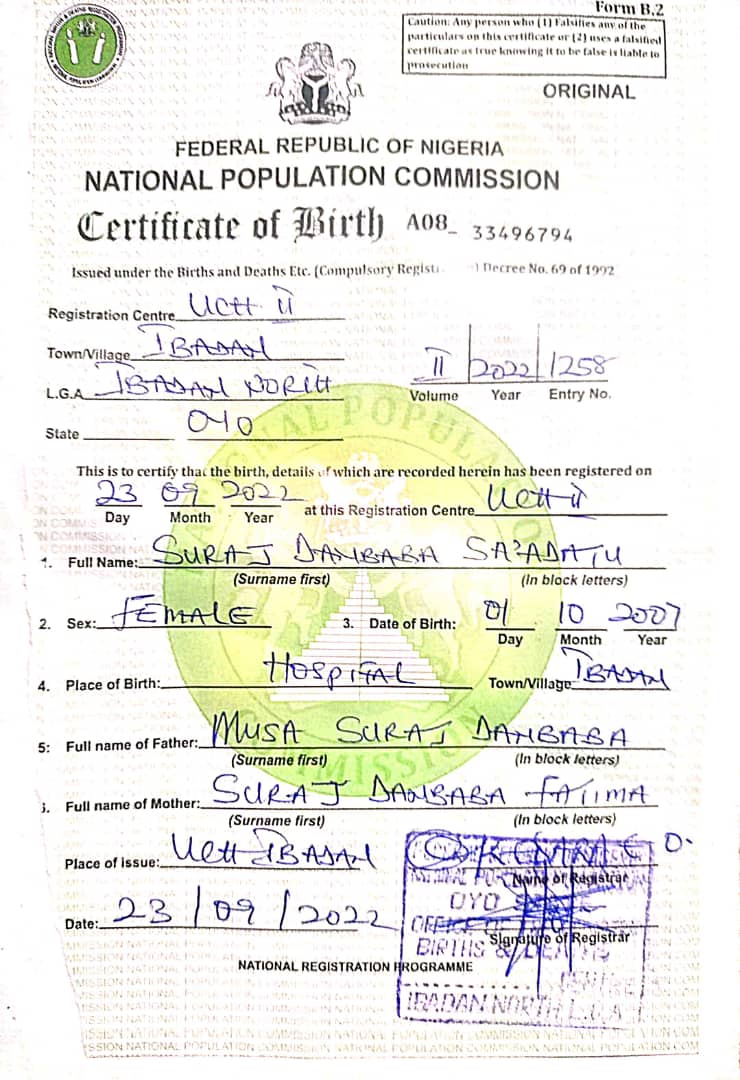 Form B.2
Caution: Any person who (1) Falsifies any of the
particulars on this certificate or (2) uses a falsified
certificate as true knowing it to be false is liable to
prosecution
ORIGINAL
FEDERAL REPUBLIC OF NIGERIA
NATIONAL POPULATION COMMISSION
Certificate of Birth A08_ 33496794
Issued under the Births and Deaths Etc. (Compulsory Decree No. 69 of 1992
Registration Centre UCH II
Town/Village IBADAN
L.G.A IBADAN NORTH
II 2022 1258
Volume Year Entry No.
State OYO
This is to certify that the birth, details of which are recorded herein has been registered on
23 09 2022 at this Registration Centre UCH II
Day Month Year
1. Full Name: SURAJ DANBABA SA'ADATU
(Surname first) (In block letters)
2. Sex: FEMALE 3. Date of Birth: 01 10 2007
Day Month Year
4. Place of Birth: HOSPITAL Town/Village IBADAN
5: Full name of Father: MUSA SURAJ DANBABA
(Surname first) (In block letters)
Full name of Mother: SURAJ DANBABA FATIMA
(Surname first) (In block letters)
Place of issue: UCH IBADAN
Name of Registrar
OYO
Date: 23/09/2022
Signature of Registrar
BIRTHS &
NATIONAL REGISTRATION PROGRAMME
IBADAN NORTH L.G.A